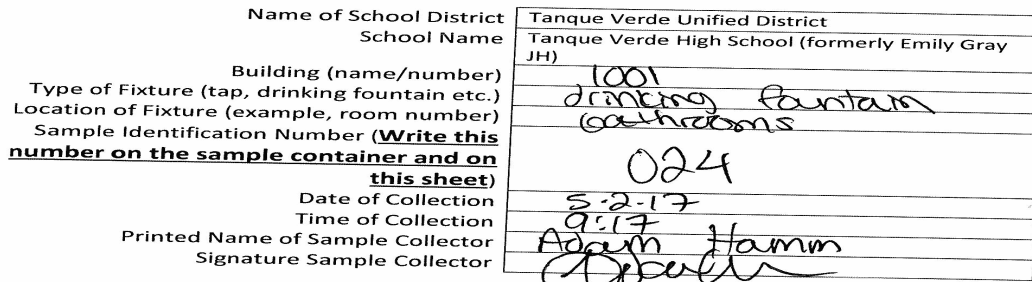 Name of School District Tanque Verde Unified District
School Name Tanque Verde High School (formerly Emily Gray
JH)
Building (name/number) 1001
Type of Fixture (tap, drinking fountain etc.) drinking fountain
Location of Fixture (example, room number) bathrooms
Sample Identification Number (Write this
number on the sample container and on
this sheet) 024
Date of Collection 5-2-17
Time of Collection 9:17
Printed Name of Sample Collector Adam Hamm
Signature Sample Collector